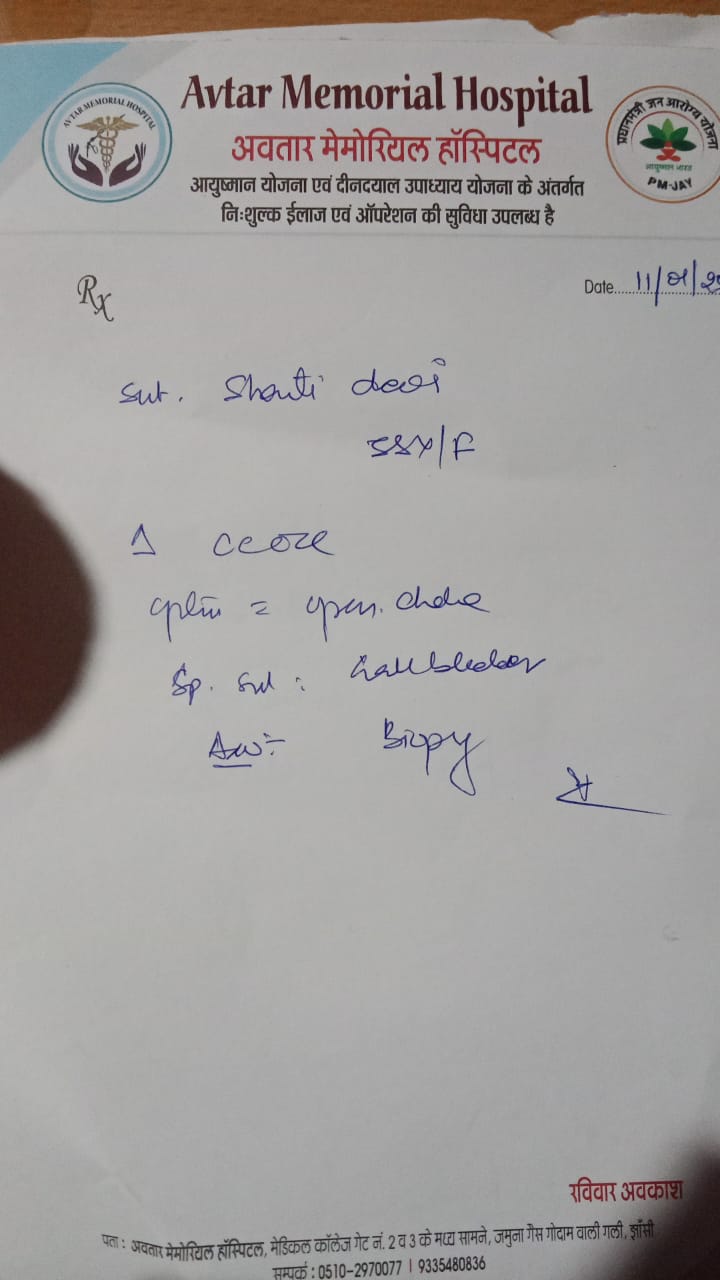 AVTAR MEMORIAL HOSPITAL
Avtar Memorial Hospital
अवतार मेमोरियल हॉस्पिटल
आयुष्मान योजना एवं दीनदयाल उपाध्याय योजना के अंतर्गत
निःशुल्क ईलाज एवं ऑपरेशन की सुविधा उपलब्ध है
प्रधानमंत्री जन आरोग्य योजना
आयुष्मान भारत
PM-JAY
Rx
Date 11/01/
Shanti devi
/F
Gallbladder
Biopsy
रविवार अवकाश
पता : अवतार मेमोरियल हॉस्पिटल, मेडिकल कॉलेज गेट नं. 2 व 3 के मध्य सामने, जमुना गैस गोदाम वाली गली, झाँसी
सम्पर्क : 0510-2970077 | 9335480836